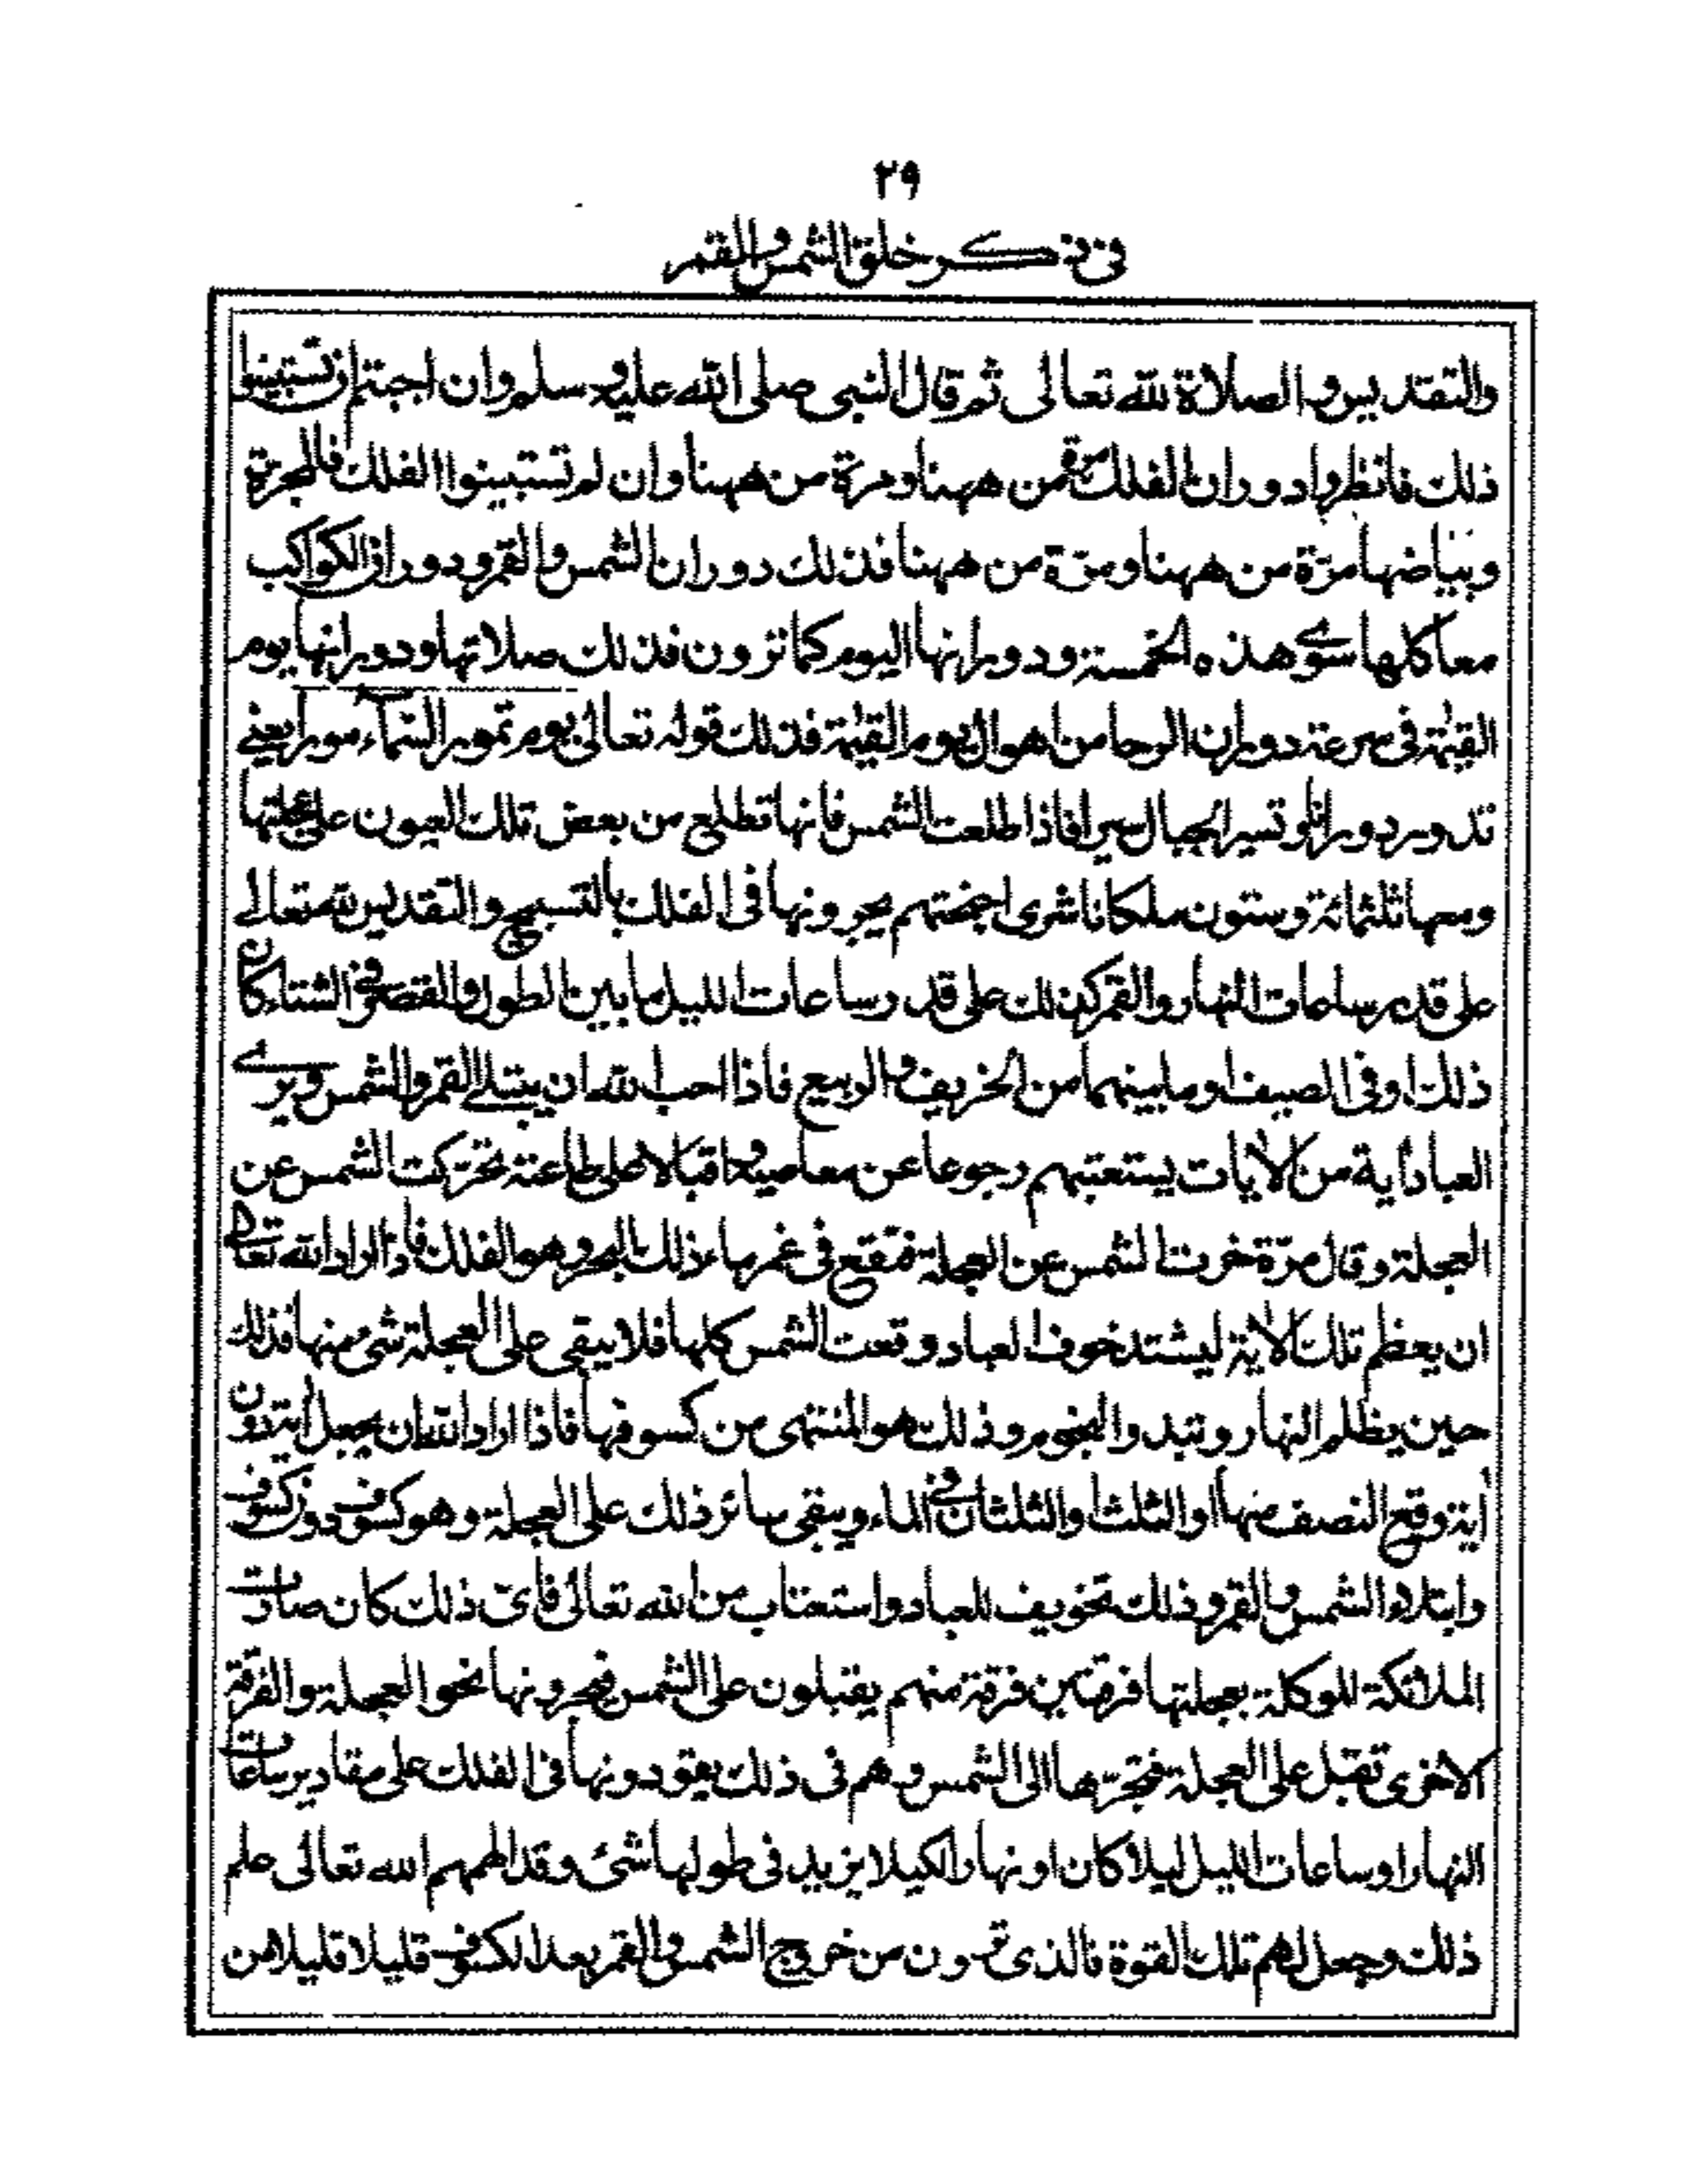 ٢٩
فى ذكر خلق الشمس والقمر
والتقديس والصلاة لله تعالى ثم قال النبى صلى الله عليه وسلم وان احببتم ان تستبينوا
ذلك فانظروا دوران الفلك مرة من ههنا ومرة من ههنا وان لم تستبينوا الفلك فالمجرة
وبياضها مرّة من ههنا ومرّة من ههنا فذلك دوران الشمس والقمر ودوران الكواكب
معا كلها سوى هذه الخمسة ودورانها اليوم كما ترون فذلك صلاتها ودورانها يوم
القيٰمة فى سرعة دوران الرحا من اهوال يوم القيٰمة فذلك قوله تعالىٰ يوم تمور السّمآء مورا يعنى
تدور دورانا وتسير الجبال سيرا فاذا طلعت الشمس فانها تطلع من بعض تلك العيون على عجلتها
ومعها ثلثمائة وستون ملكا ناشرى اجنحتهم يجرونها فى الفلك بالتسبيح والتقديس لله تعالى
على قدر ساعات النهار والقمر كذلك على قدر ساعات الليل ما بين الطول والقصر فى الشتاء كان
ذلك او فى الصيف او ما بينهما من الخريف والربيع فاذا احب الله ان يبتلى القمر والشمس ويرى
العباد أية من الأيات يستعتبهم رجوعا عن معاصيه واقبالا على طاعته تحرّكت الشمس عن
العجلة وقال مرّة خرت الشمس عن العجلة فتقع فى غمر ماء ذلك البحر وهو الفلك فاذا اراد الله تعالى
ان يعظم تلك الأية ليشتد خوف العباد وقعت الشمس كلها فلا يبقى على العجلة شىء منها فذلك
حين يظلم النهار وتبدو النجوم وذلك هو المنتهى من كسوفها فاذا اراد الله ان يجعل اية دون
أية وقع النصف منها او الثلث او الثلثان فى الماء ويبقى سائر ذلك على العجلة وهو كسوف دون كسوف
وابتلاء الشمس والقمر وذلك تخويف للعباد واستعتاب من الله تعالىٰ فأىّ ذلك كان صارت
الملائكة الموكلة بعجلتها فرقتين فرقة منهم يقبلون على الشمس فيجرونها نحو العجلة والفرقة
الاخرى تقبل على العجلة فتجرّها الى الشمس وهم فى ذلك يقودونها فى الفلك على مقادير ساعات
النهار او ساعات الليل ليلا كان او نهارا لكيلا يزيد فى طولها شئ وقد الهمهم الله تعالى علم
ذلك وجعل لهم تلك القوة فالذى ترون من خروج الشمس والقمر بعد الكسوف قليلا قليلا من